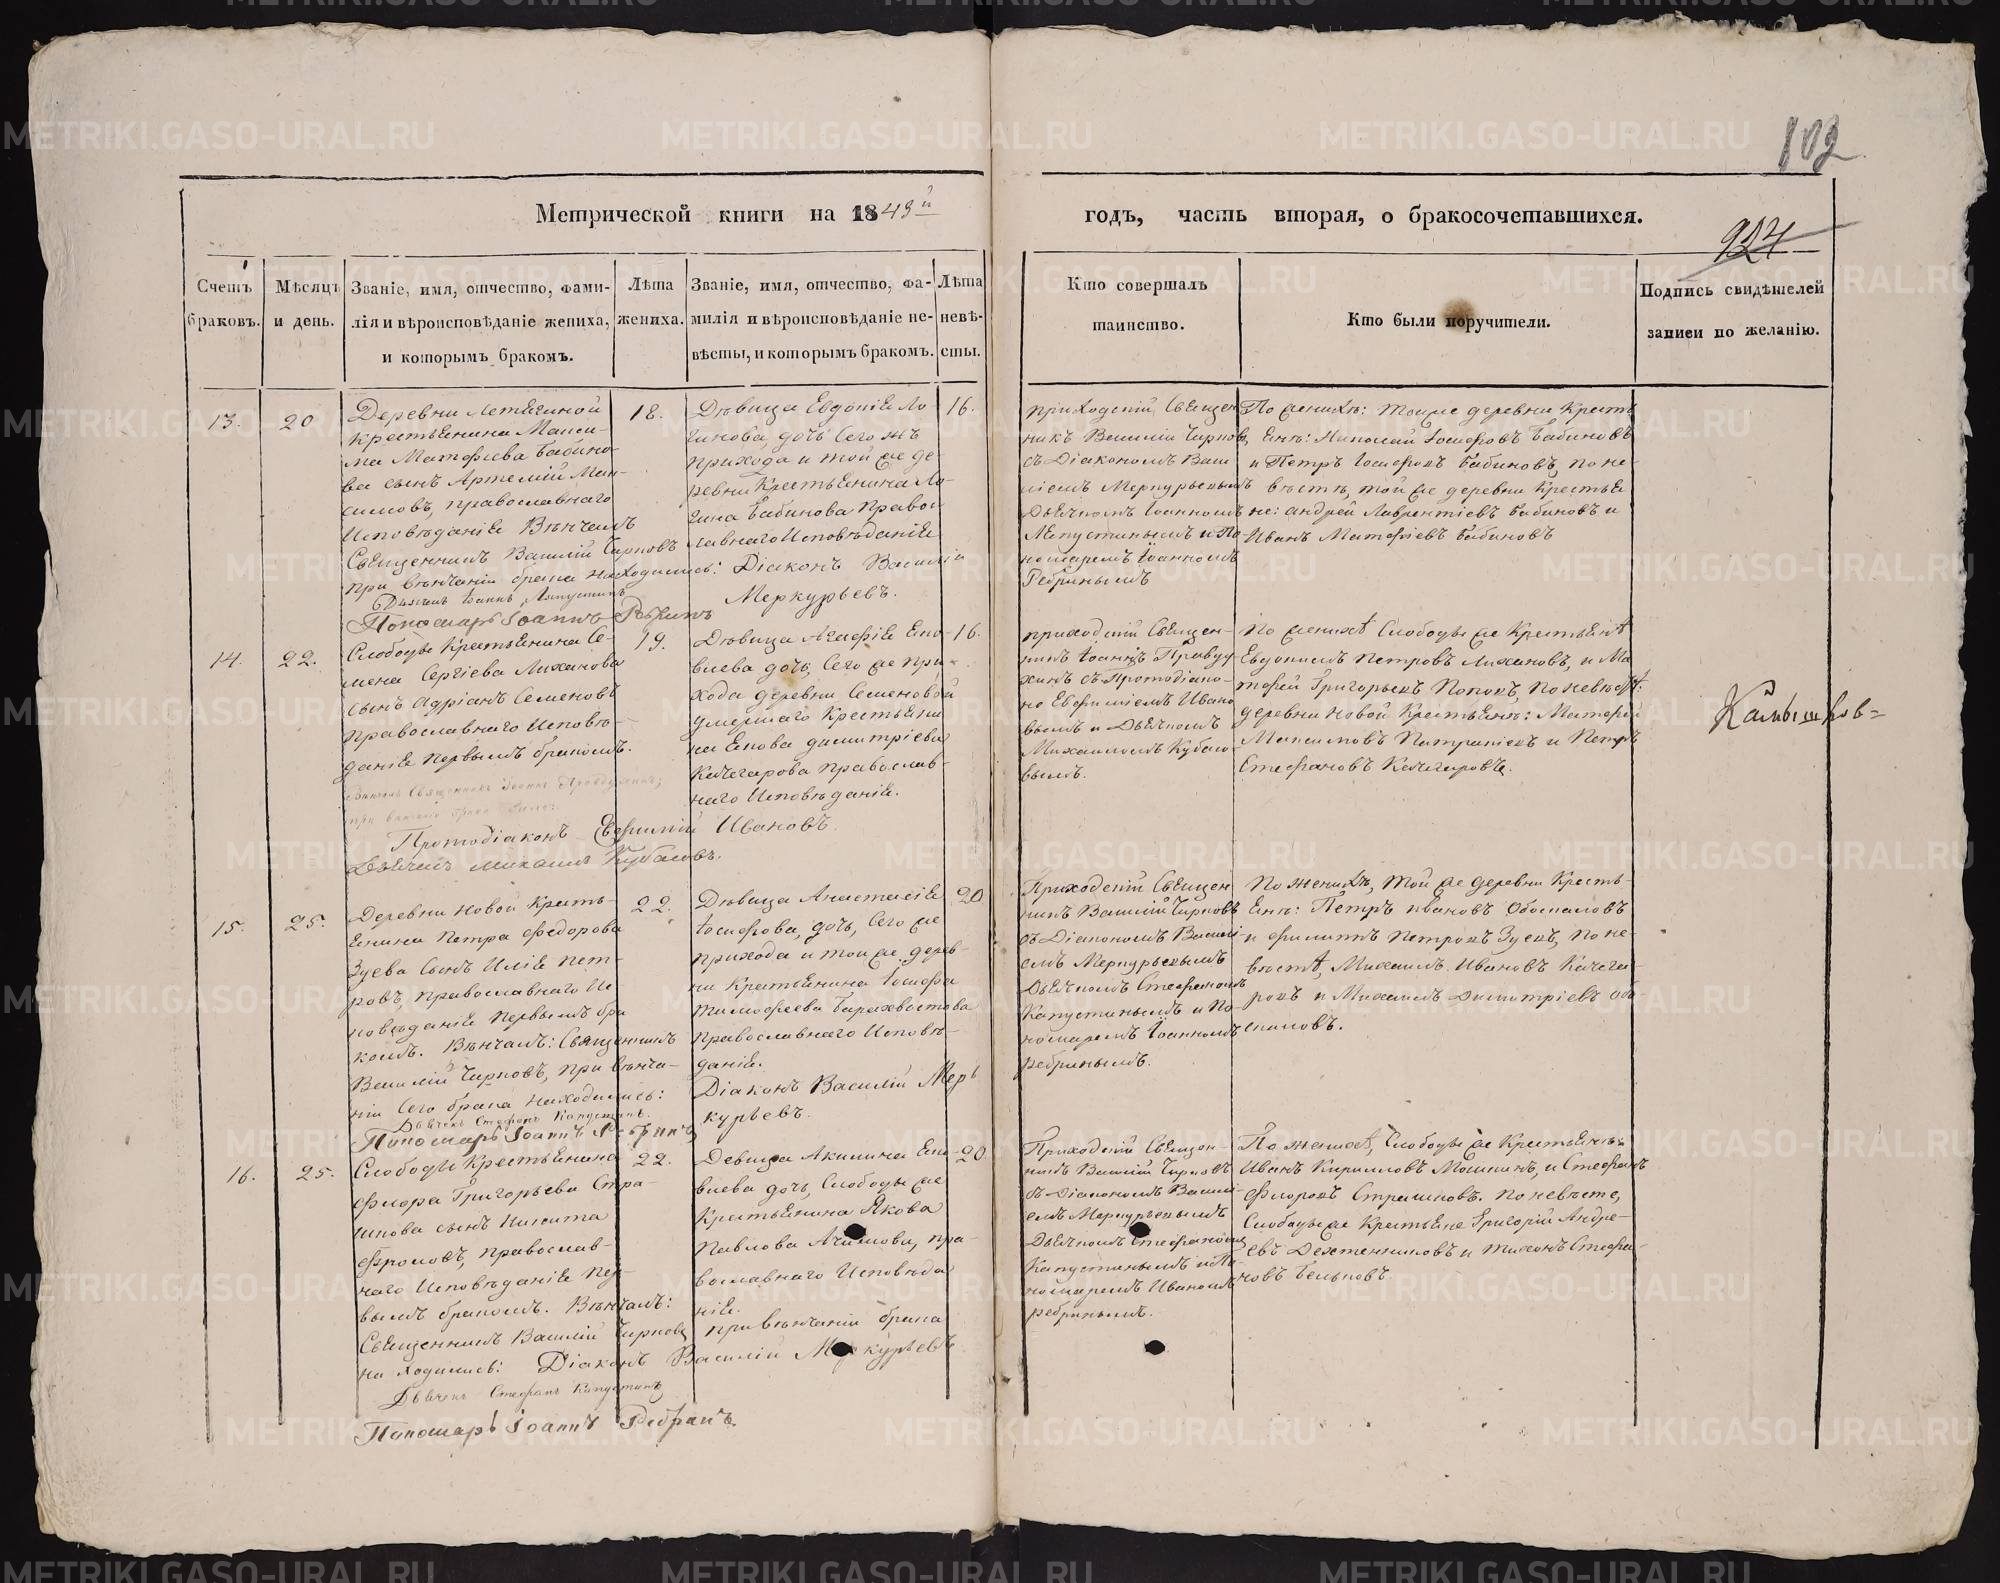 102
Метрической книги на 1843й
годъ, часть вторая, о бракосочетавшихся.
924
Счетъ браковъ.
Мѣсяцъ и день.
Званіе, имя, отчество, фами-
лія и вѣроисповѣданіе жениха,
и которымъ бракомъ.
Лѣта
жениха.
Званіе, имя, отчество, фа-
милія и вѣроисповѣданіе не-
вѣсты, и которымъ бракомъ.
Лѣта
невѣ-
сты.
Кто совершалъ
таинство.
Кто были поручители.
Подпись свидѣтелей
записи по желанію.
13.
20
Деревни
крестьянина Макси-
ма Матфіева Бабино-
ва сынъ Артемій Мак-
симовъ, православнаго
исповѣданія Вѣнчалъ
Священникъ Василій Чирковъ
при вѣнчаніи брака находились: Діаконъ Василій
Меркурьевъ.
Пономарь Іоаннъ Ребринъ
18.
Дѣвица Евдокія Ло-
гинова, дочь Сего жъ
прихода и той же де-
ревни Крестьянина Ло-
гина Бабинова Правос-
лавнаго Исповѣданія
16.
приходскій Священ-
никъ Василій Чирковъ,
съ Діакономъ Васи-
ліемъ Меркурьевымъ
Дьячкомъ Іоанномъ
и По-
номаремъ Іоанномъ
Ребринымъ
По женихѣ: тоя же деревни Кресть-
яне: Николай Іосифовъ Бабиновъ
и Петръ Іосифовъ Бабиновъ, по не-
вѣстѣ, той же деревни Крестья-
не: Андрей Лаврентіевъ Бабиновъ и
Иванъ Матфіевъ Бабиновъ
14.
22.
Слободы Крестьянина Се-
мена Сергіева Лиханова
сынъ Адріанъ Семеновъ
Православнаго Исповѣ-
данія Первымъ бракомъ.
Протодіаконъ Евфимій Ивановъ.
Дьячекъ Михаилъ Кубасовъ.
19.
Дѣвица Агафія Ено-
влева дочь, Сего же при-
хода деревни Семеновой
умершаго Крестьяни-
на Енова Димитріева
Качегарова Православ-
наго Исповѣданія.
16.
приходскій Священ-
никъ Іоаннъ
съ Протодіако-
но Евфиміемъ Ивано-
вымъ и Дьячкомъ
Михаиломъ Кубасо-
вымъ.
По женихѣ Слободы же Крестьянѣ
Евдокимъ Петровъ Лихановъ, и Ма-
тфей Григорьевъ Поповъ, По невѣстѣ:
деревни Новой Крестьяне: Матфей
Максимовъ и Петръ
Стефановъ Качегаровъ.
15.
25.
Деревни Новой Кресть-
янина Петра Федорова
Зуева Сынъ Илія Пет-
ровъ, православнаго Ис-
повѣданія Первымъ бра-
комъ. Вѣнчалъ: Священникъ
Василій Чирковъ, при вѣнча-
ніи Сего брака Находились:
Дьячекъ Стефанъ Капустинъ.
Пономарь Іоаннъ Ребринъ
22.
Дѣвица Анастасія
Іосифова, дочь, Сего же
прихода и тоя же дерев-
ни Крестьянина Іосифа
Тимофеева Барахвостова
Православнаго Исповѣ-
данія.
Діаконъ Василій Мер-
курьевъ.
20
Приходскій Священ-
никъ Василій Чирковъ
съ Діакономъ Василі-
емъ Меркурьевымъ
Дьячкомъ Стефаномъ
Капустинымъ и По-
номаремъ Іоанномъ
ребринымъ.
По женихѣ, той же деревни Кресть-
яне: Петръ Ивановъ Обоскаловъ
и Филиппъ Петровъ Зуевъ, по не-
вѣстѣ, Михаилъ Ивановъ Качега-
ровъ и Михаилъ Димитріевъ Обо-
скаловъ.
16.
25.
Слободы Крестьянина
Флора Григорьева Стра-
шкова сынъ Никита
Флоровъ, православ-
наго Исповѣданія пер-
вымъ бракомъ. Вѣнчалъ:
Священникъ Василій Чирковъ
находились: Діаконъ Василій Меркурьевъ
Дьячекъ Стефанъ Капустинъ
Пономарь Іоаннъ Ребринъ.
22.
Девица Акилина Яко-
влева дочь, Слободы же
Крестьянина Якова
Павлова, пра-
вославнаго Исповѣда-
нія.
при вѣнчаніи брака
20.
Приходскій Священ-
никъ Василій Чирковъ
съ Діакономъ Васили-
емъ Меркурьевымъ
Дьячкомъ Стефаномъ
Капустинымъ и По-
номаремъ Иваномъ
ребринымъ.
По женихѣ, Слободы же Крестьяне:
Иванъ Кириловъ Мошкинъ, и Стефанъ
Флоровъ Страшковъ. По невѣсте,
Слободы же Крестьяне Григорій Андре-
евъ и Тихонъ Стефа-
новъ Бельковъ.
METRIKI.GASO-URAL.RU